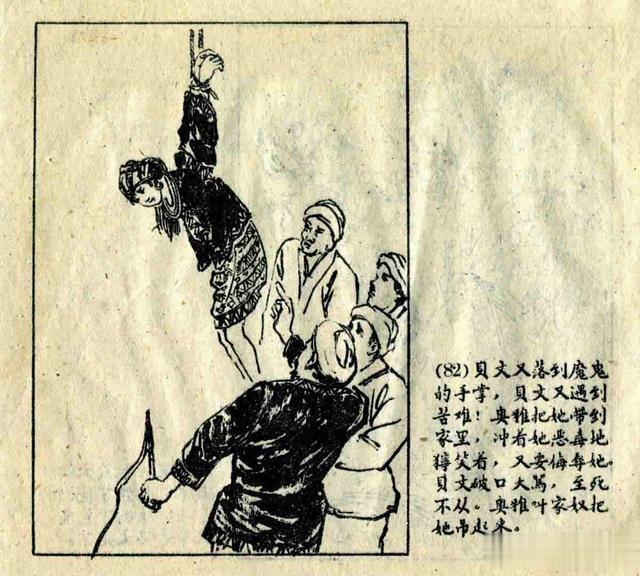 (82)貝文又落到魔鬼
的手掌，貝文又遇到
苦难！奥雅把她带到
家里，冲着她恶毒地
獰笑着，又要侮辱她。
貝文破口大罵，至死
不从。奥雅叫家奴把
她吊起来。